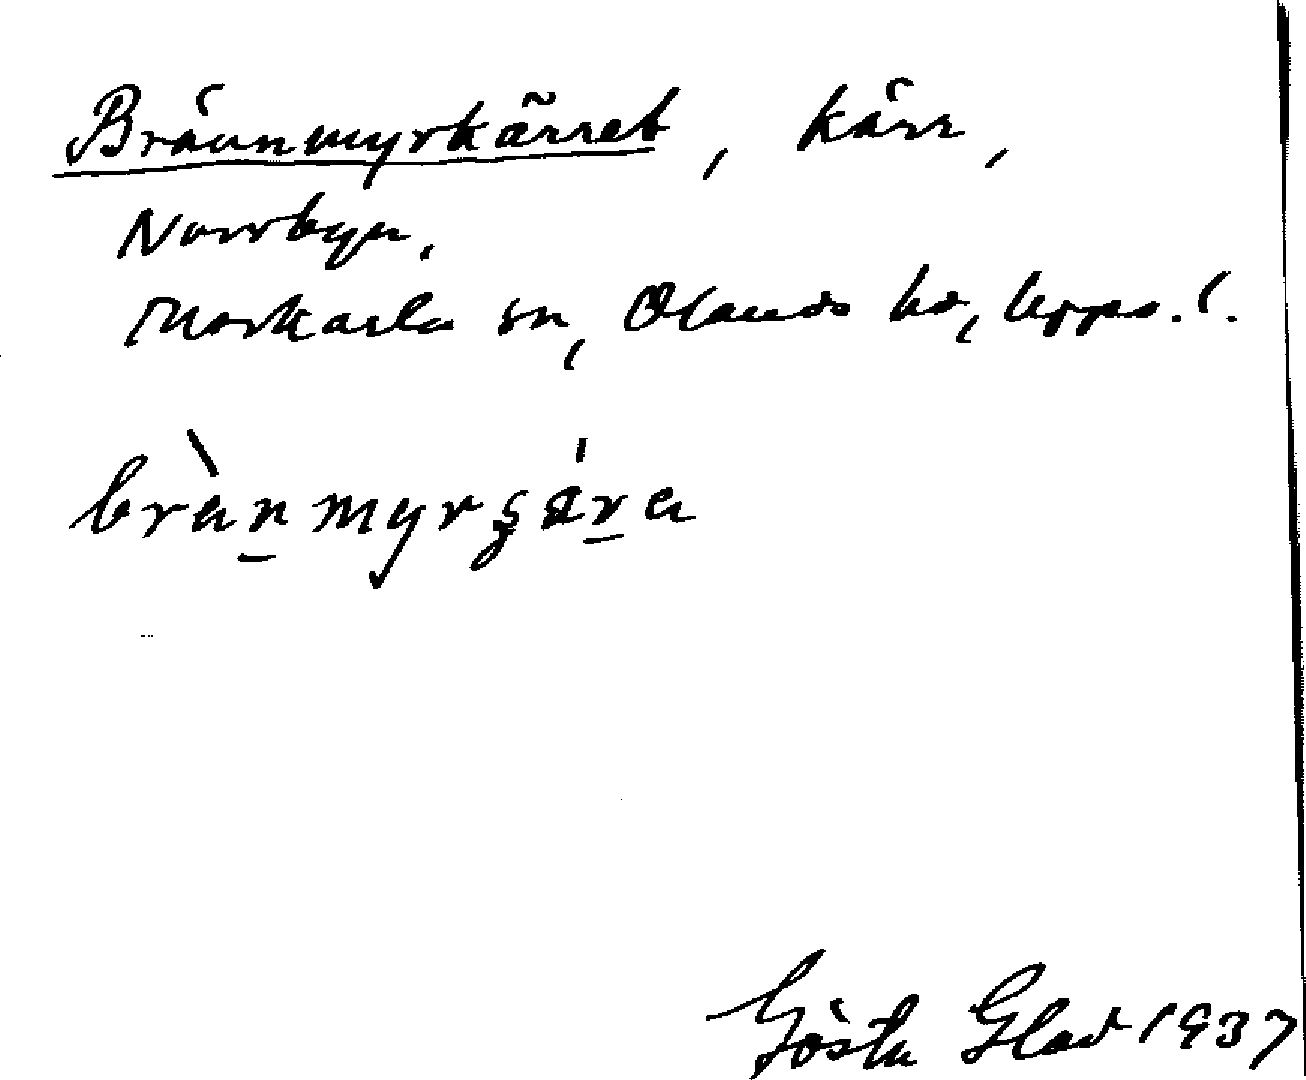 Brännmyrkärret, kärr,
Norrbyn.
Morkarla sn, Olands hd, Upps. l.
brànmyrʂára
Gösta Glad 1937